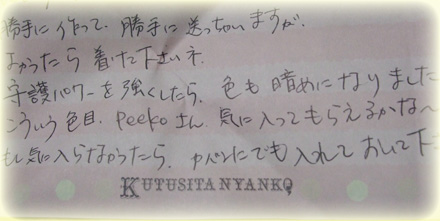 勝手に作って、勝手に送っちゃいますが、
よかったら着けて下さいネ
守護パワーを強くしたら、色も暗めになりました
こういう色目、Peekoさん、気に入ってもらえるかな〜
もし気に入らなかったら、カバンにでも入れておいて下
KUTUSITA NYANKO